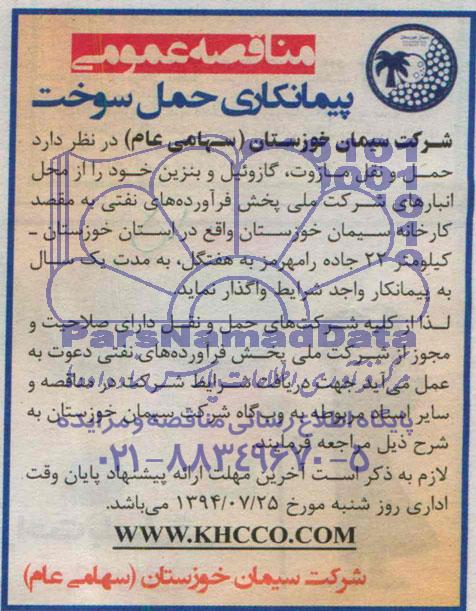 مناقصه عمومی
پیمانکاری حمل سوخت
شرکت سیمان خوزستان (سهامی عام) در نظر دارد
حمل و نقل مازوت، گازوئیل و بنزین خود را از محل
انبارهای شرکت ملی پخش فرآورده‌های نفتی به مقصد
کارخانه سیمان خوزستان واقع در استان خوزستان -
کیلومتر ۲۲ جاده رامهرمز به هفتگل، به مدت یک سال
به پیمانکار واجد شرایط واگذار نماید.
لذا از کلیه شرکت‌های حمل و نقل دارای صلاحیت و
ParsNamadData
مجوز از شرکت ملی پخش فرآورده‌های نفتی دعوت به
عمل می‌آید جهت دریافت شرایط شرکت در مناقصه و
سایر اسناد مربوطه به وب‌گاه شرکت سیمان خوزستان به
پایگاه اطلاع رسانی مناقصه و مزایده
شرح ذیل مراجعه فرمایند.
۰۲۱-۸۸۳۴۹۶۷۰-۵
لازم به ذکر است آخرین مهلت ارائه پیشنهاد پایان وقت
اداری روز شنبه مورخ ۱۳۹۴/۰۷/۲۵ می‌باشد.
WWW.KHCCO.COM
شرکت سیمان خوزستان (سهامی عام)